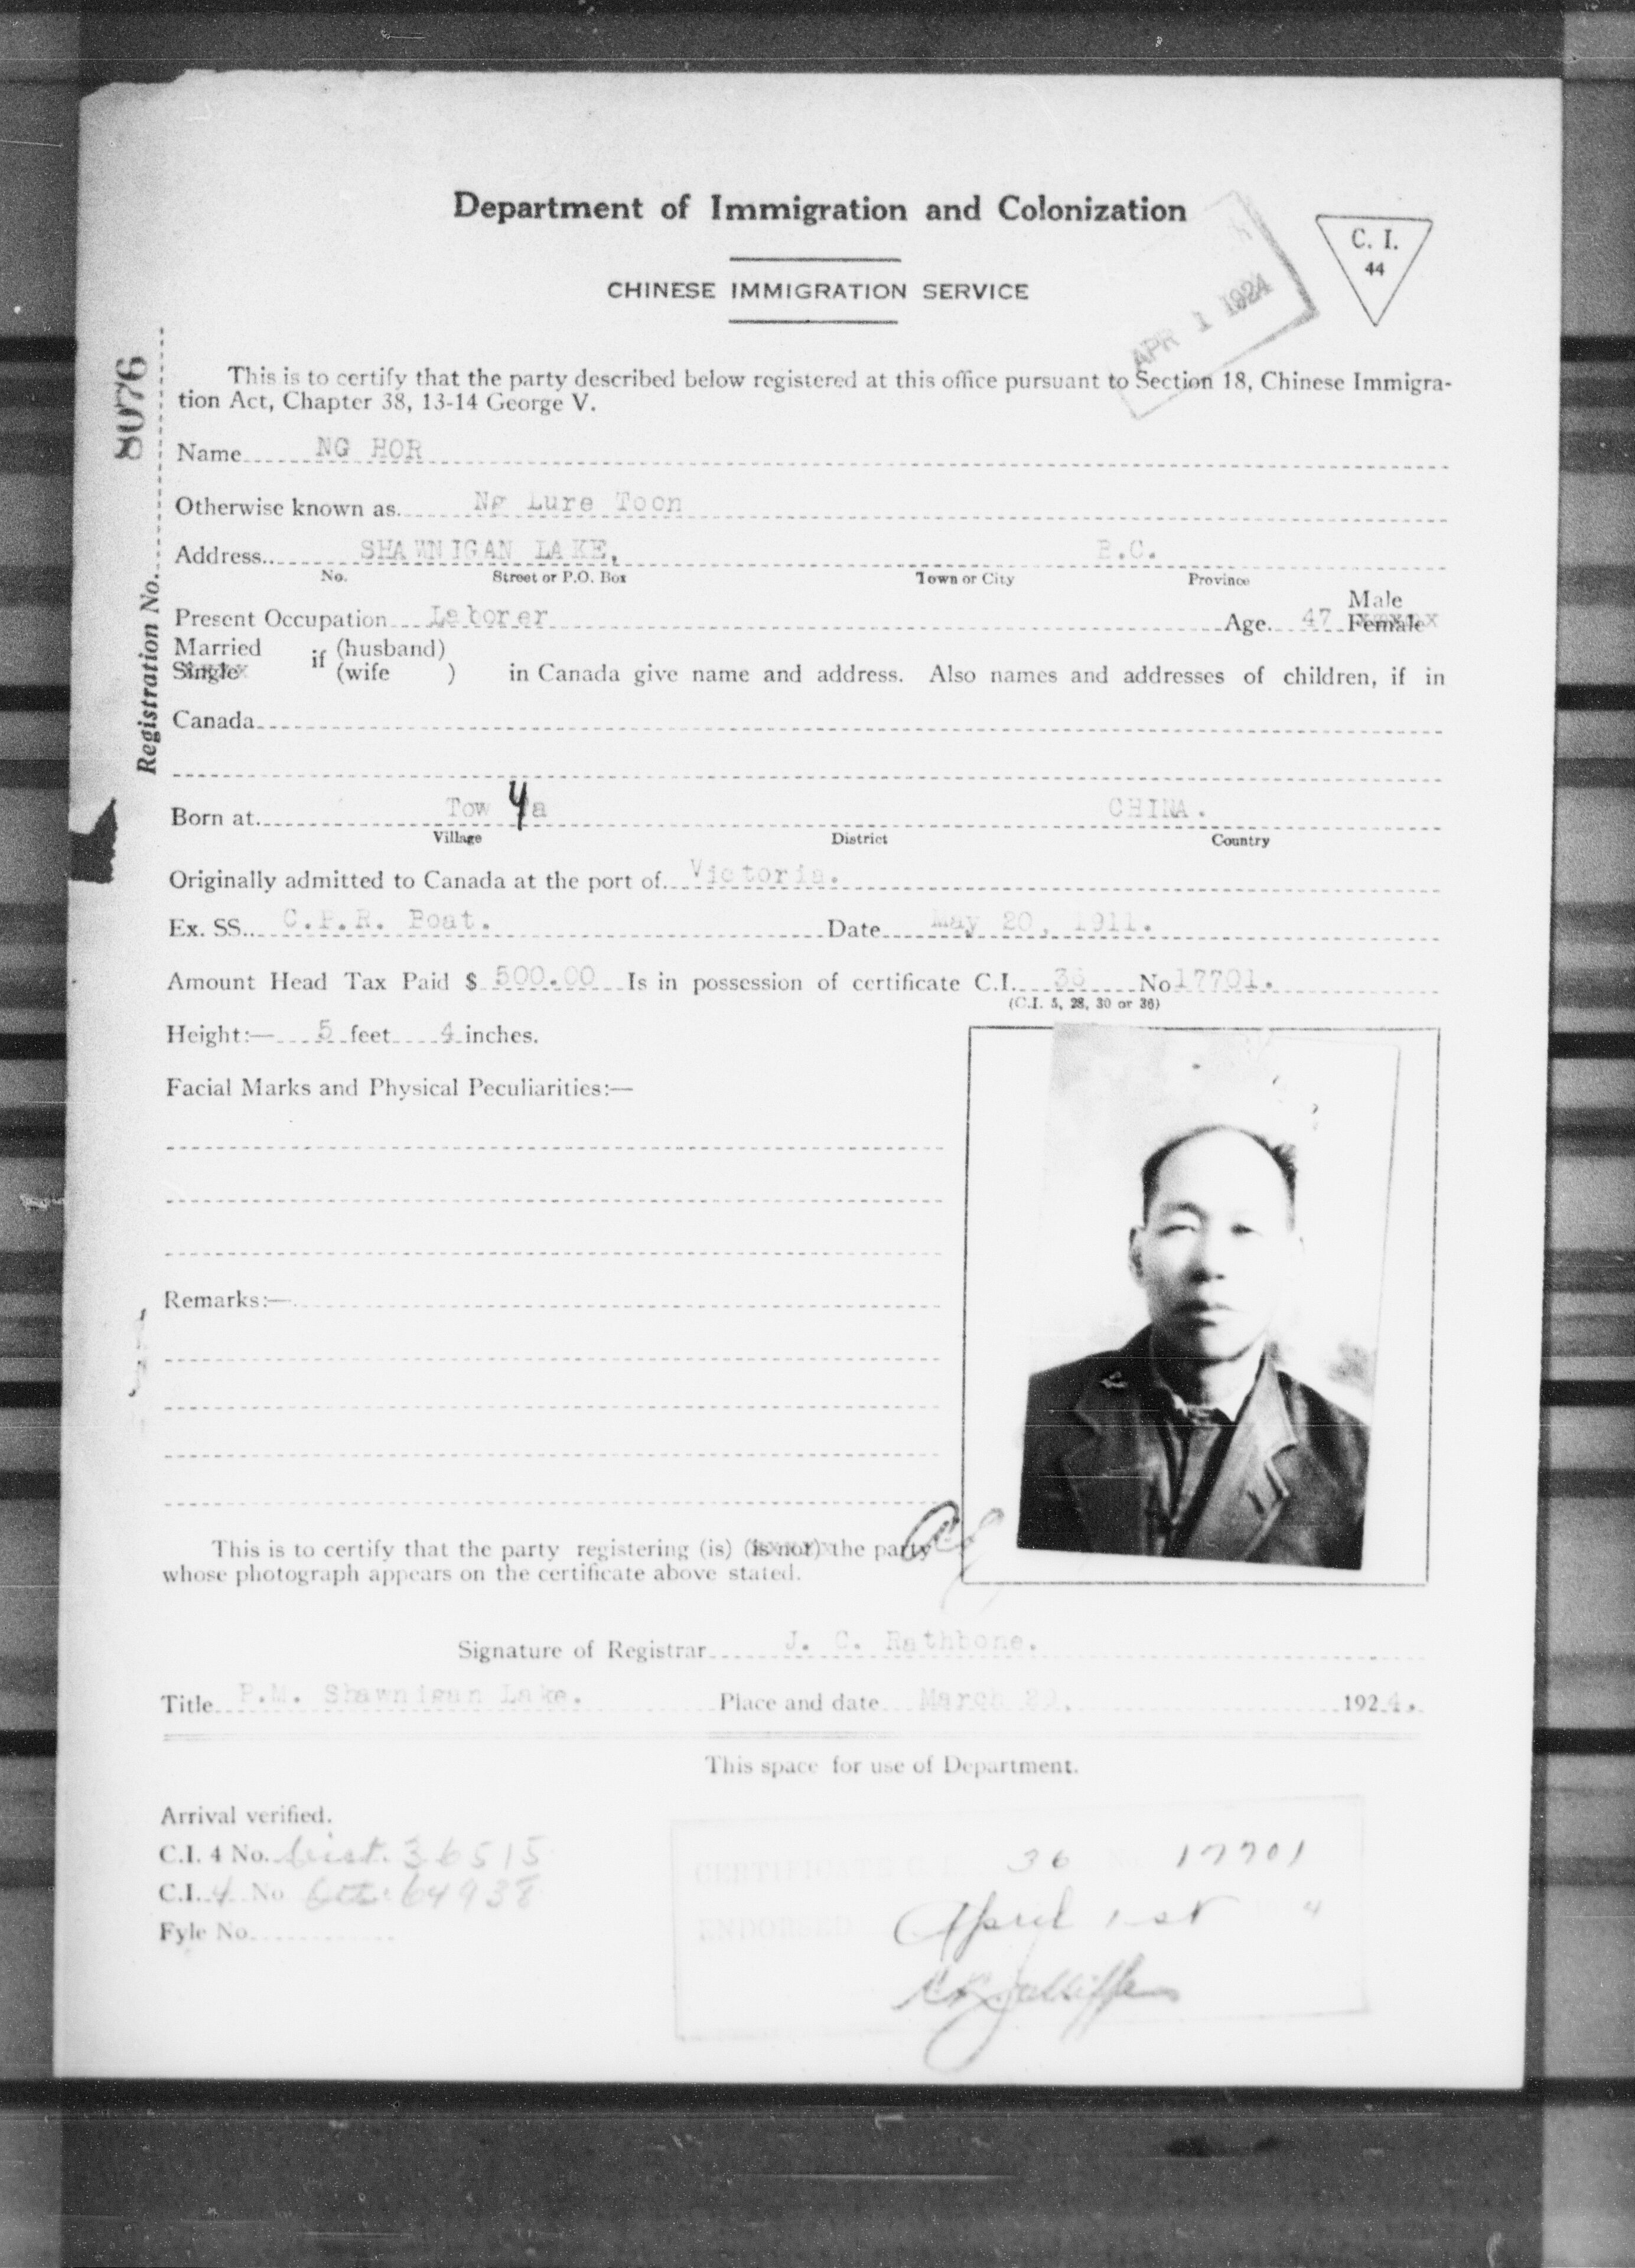 Department of Immigration and Colonization
CHINESE IMMIGRATION SERVICE
APR 1 1924
C. I.
44
Registration No. 8076
This is to certify that the party described below registered at this office pursuant to Section 18, Chinese Immigra-
tion Act, Chapter 38, 13-14 George V.
Name NG HOR
Otherwise known as Ng Lure Toon
Address SHAWNIGAN LAKE, B.C.
No. Street or P.O. Box Town or City Province
Male
Present Occupation Laborer Age 47 Female
Married (husband)
Single if (wife ) in Canada give name and address. Also names and addresses of children, if in
Canada
Born at Tow Ya CHINA.
Village District Country
Originally admitted to Canada at the port of Victoria.
Ex. SS. C.P.R. Boat. Date May 20, 1911.
Amount Head Tax Paid $ 500.00 Is in possession of certificate C.I. 36 No 17701.
(C.I. 5, 28, 30 or 36)
Height:— 5 feet 4 inches.
Facial Marks and Physical Peculiarities:—
Remarks:—
This is to certify that the party registering (is) (is not) the party
whose photograph appears on the certificate above stated.
Signature of Registrar J. C. Rathbone.
Title P.M. Shawnigan Lake. Place and date March 1924.
This space for use of Department.
Arrival verified.
C.I. 4 No. 36515
C.I. 4 No 64938
Fyle No.
CERTIFICATE C.I. 36 17701
ENDORSED April 1st 4